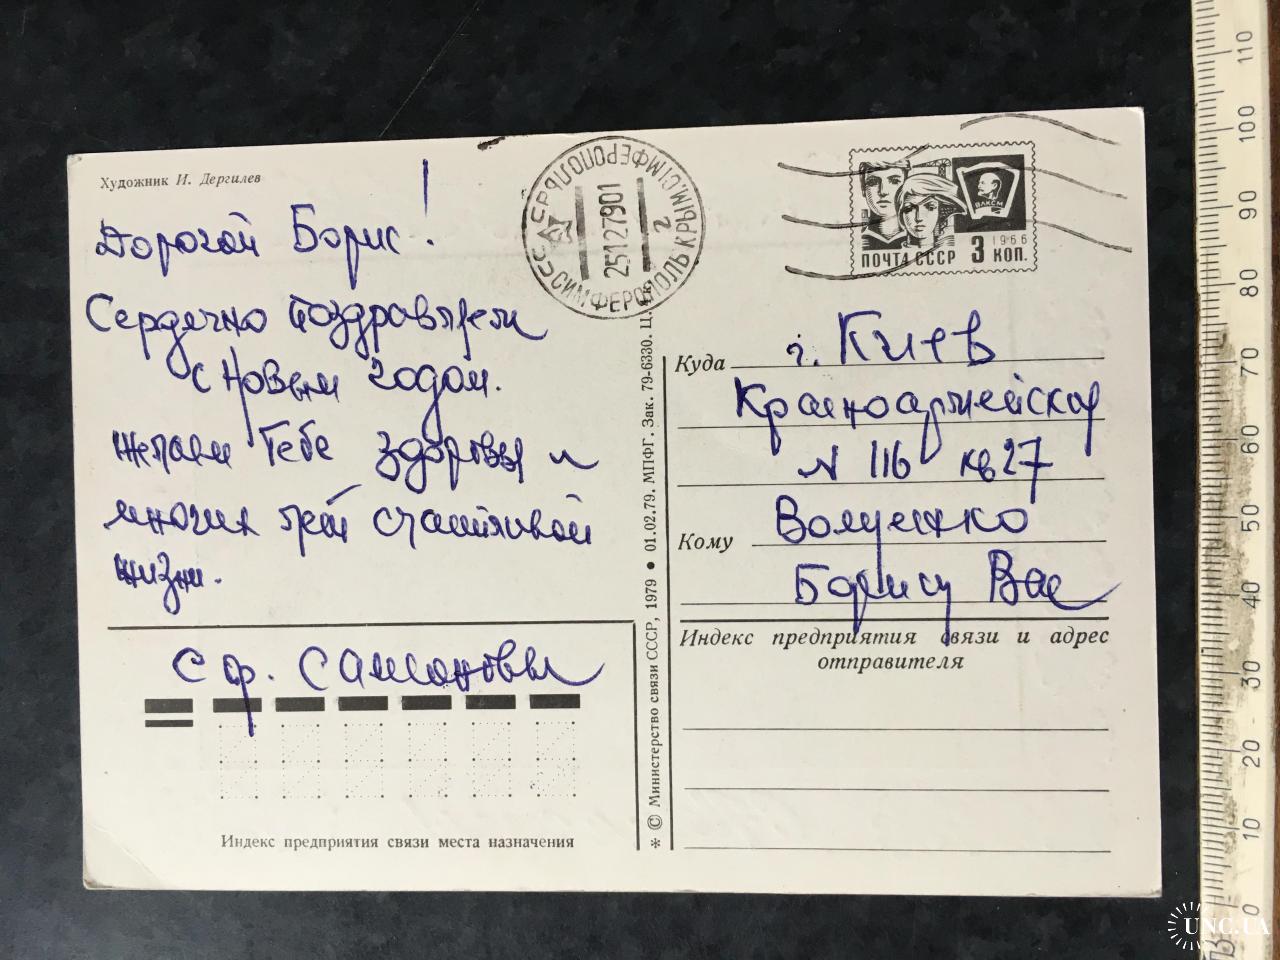 Художник И. Дергилев
Дорогой Борис!
Сердечно поздравляем
с Новым годом.
Желаем тебе здоровья и
многих лет счастливой
жизни.
С ф. Самсоновы
Индекс предприятия связи места назначения
* © Министерство связи СССР, 1979 • 01.02.79. МПФГ. Зак. 79-6330. Ц.
СССР СИМФЕРОПОЛЬ КРЫМ.
СІМФЕРОПОЛЬ
25127901
2
ВЛКСМ
1966
ПОЧТА СССР 3 КОП.
Куда г. Киев
Красноармейская
N 116 кв 27
Кому
Борису Вас
Индекс предприятия связи и адрес
отправителя
110
100
90
80
70
60
50
40
30
20
10
0
UNC.UA